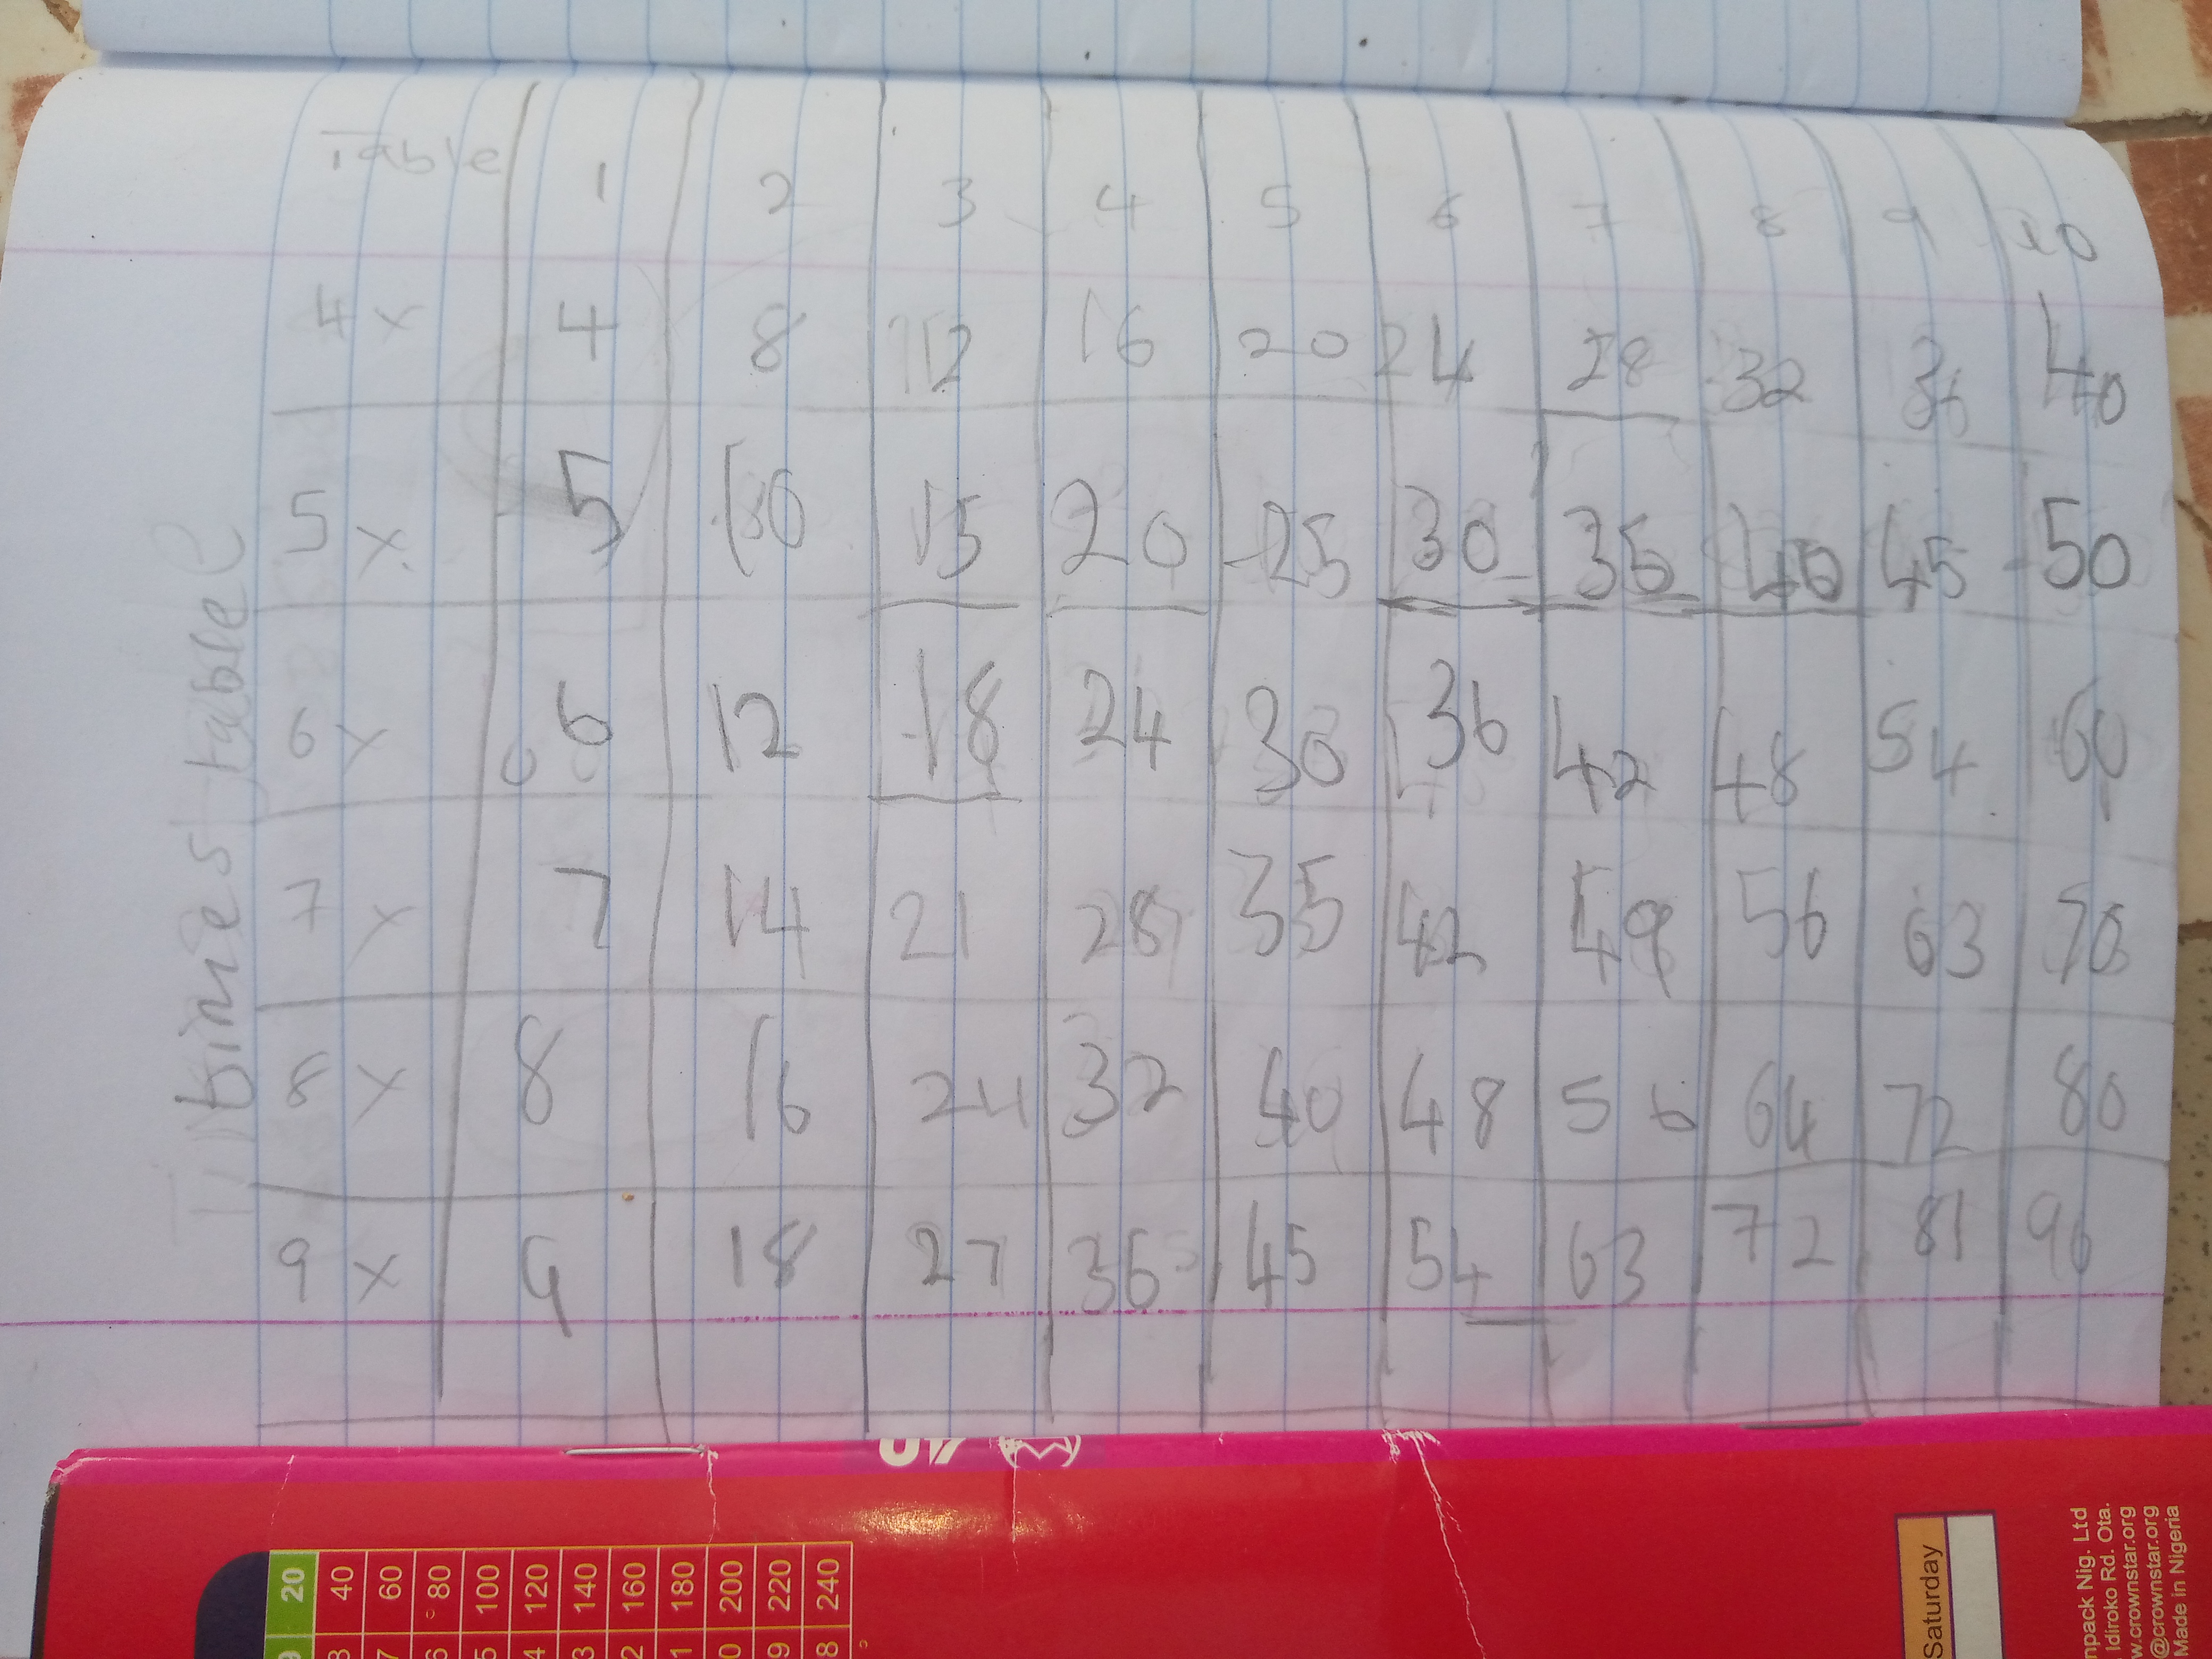 Times table
Table 1 2 3 4 5 6 7 8 9 10
4 x 4 8 12 16 20 24 28 32 36 40
5 x 5 10 15 20 25 30 35 40 45 50
6 x 6 12 18 24 30 36 42 48 54 60
7 x 7 14 21 28 35 42 49 56 63 70
8 x 8 16 24 32 40 48 56 64 72 80
9 x 9 18 27 36 45 54 63 72 81 90
20
40
60
80
100
120
140
160
180
200
220
240
Saturday
npack Nig. Ltd
Idiroko Rd. Ota.
w.crownstar.org
@crownstar.org
Made in Nigeria